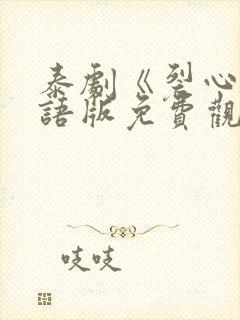 泰劇《裂心
語版免費觀
吱吱